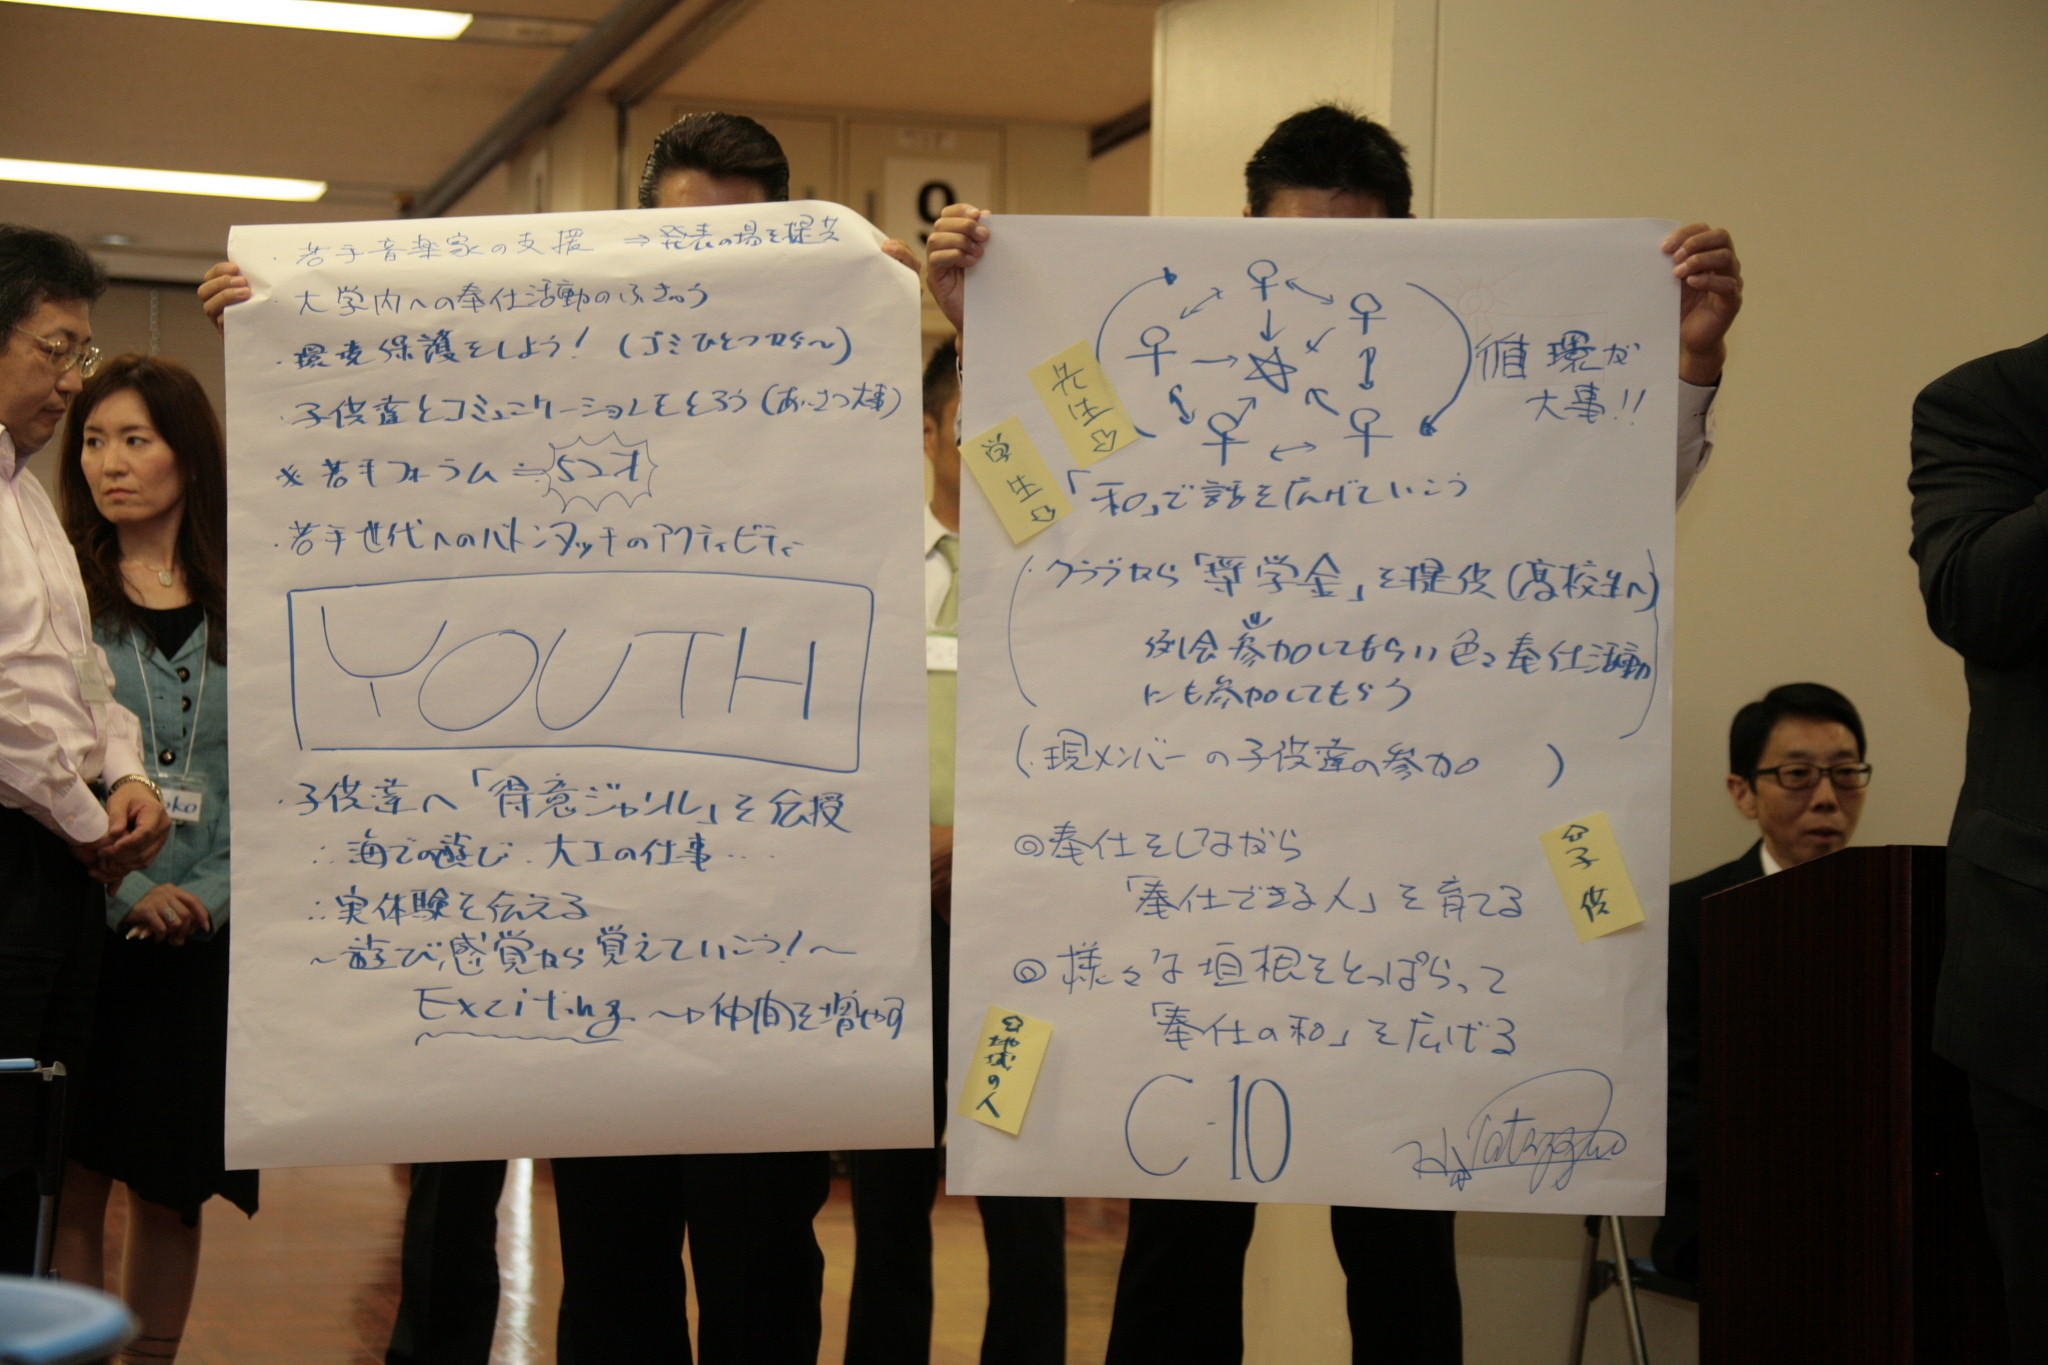 ・若手音楽家の支援 ⇒発表の場を提供
・大学内への奉仕活動のふきゅう
・環境保護をしよう！(ゴミひとつから〜)
・子供達とコミュニケーションをとろう(あいさつ大事)
※若手フォーラム≒52才
・若手世代へのバトンタッチのアクティビティ
YOUTH
・子供達へ「得意ジャンル」を伝授
∴海での遊び、大工の仕事‥‥
∴実体験を伝える
〜遊び感覚から覚えていこう！〜
Exciting 〜→仲間を増やす
9
oko
循環が
大事!!
先生⇨
学生⇨
「和」で話を広げていこう
(・クラブから「奨学金」を提供(高校生へ)
例会参加してもらい色々奉仕活動
にも参加してもらう)
(・現メンバーの子供達の参加)
◎奉仕をしながら
「奉仕できる人」を育てる
⇨子供
◎様々な垣根をとっぱらって
「奉仕の和」を広げる
⇨地域の人
C-10